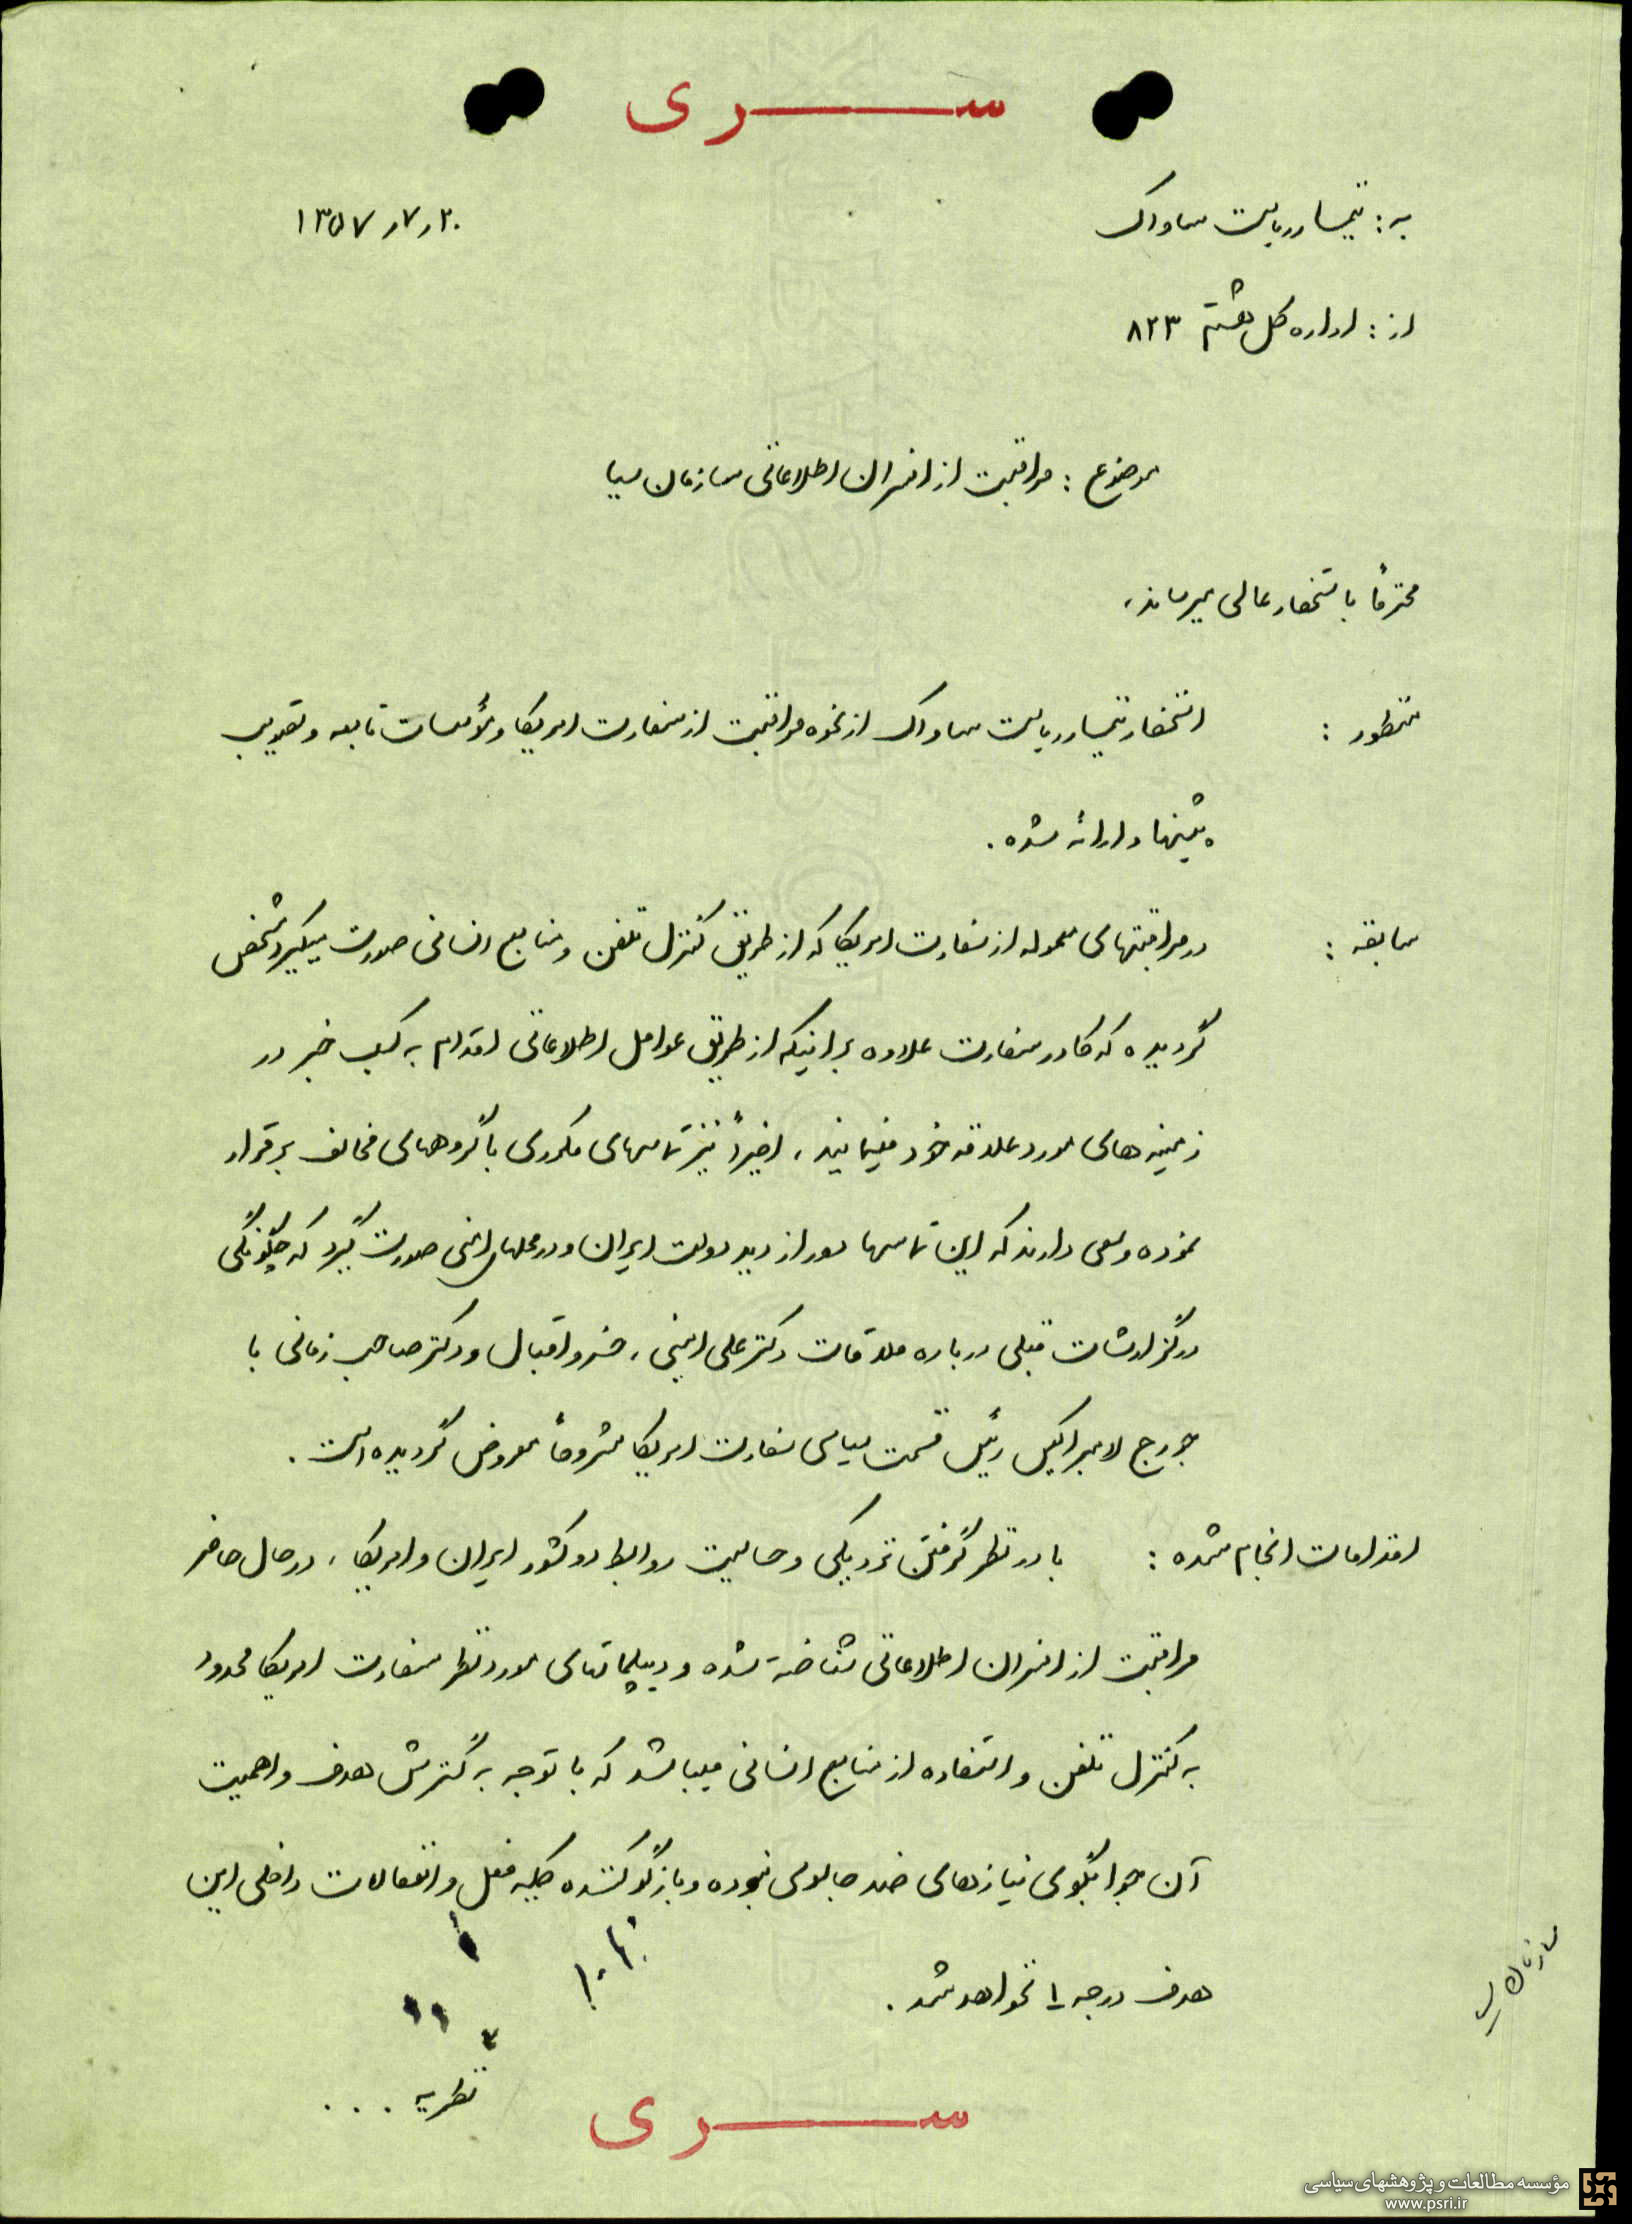 سری
به : تیمسار ریاست ساواک
۲۰ر۷ر۱۳۵۷
از : اداره کل هشتم ۸۲۳
موضوع : مراقبت از افسران اطلاعاتی سازمان سیا
محترماً باستحضار عالی میرساند،
منظور : استحضار تیمسار ریاست ساواک از نحوه مراقبت از سفارت امریکا و مؤسسات تابعه و تصویب
پیشنهاد ارائه شده .
سابقه : در مراقبتهای معموله از سفارت امریکا که از طریق کنترل تلفن و منابع انسانی صورت میگیرد مشخص
گردیده که کادر سفارت علاوه بر اینکه از طریق عوامل اطلاعاتی اقدام به کسب خبر در
زمینه های مورد علاقه خود مینمایند ، اخیراً نیز تماسهای مکرری با گروههای مخالف برقرار
نموده و سعی دارند که این تماسها دور از دید دولت ایران و در محلهای امنی صورت گیرد که چگونگی
در گزارشات قبلی درباره ملاقات دکتر علی امینی ، خسرو اقبال و دکتر صاحب زمانی با
جورج لامبراکیس رئیس قسمت سیاسی سفارت امریکا مشروحاً معروض گردیده است .
اقدامات انجام شده : با در نظر گرفتن نزدیکی و حساسیت روابط دو کشور ایران و امریکا ، در حال حاضر
مراقبت از افسران اطلاعاتی شناخته شده و دیپلماتهای مورد نظر سفارت امریکا محدود
به کنترل تلفن و استفاده از منابع انسانی میباشد که با توجه به گسترش هدف و اهمیت
آن جوابگوی نیازهای ضد جاسوسی نبوده و بازگو کننده کلیه فعل و انفعالات داخلی این
هدف درجه ۱ نخواهد شد .
سازمان سیا
نظریه . . .
سری
مؤسسه مطالعات و پژوهشهای سیاسی
www.psri.ir